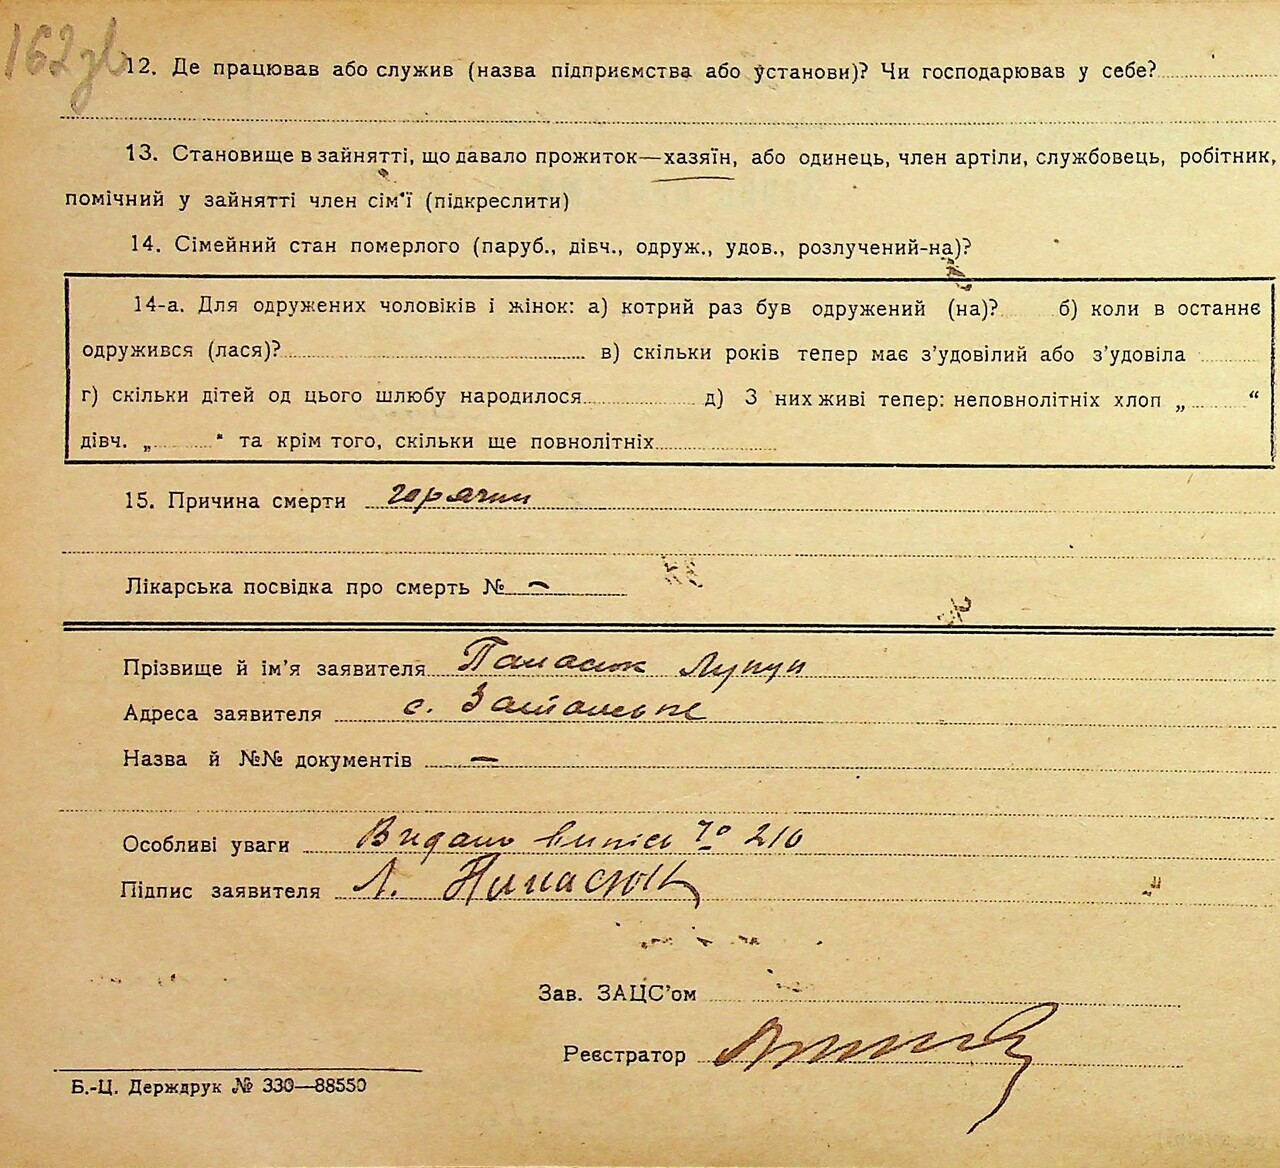 162зв
12. Де працював або служив (назва підприємства або установи)? Чи господарював у себе?
13. Становище в зайнятті, що давало прожиток—хазяїн, або одинець, член артіли, службовець, робітник,
помічний у зайнятті член сім'ї (підкреслити)
14. Сімейний стан померлого (паруб., дівч., одруж., удов., розлучений-на)?
14-а. Для одружених чоловіків і жінок: а) котрий раз був одружений (на)? б) коли в останнє
одружився (лася)? в) скільки років тепер має з'удовілий або з'удовіла
г) скільки дітей од цього шлюбу народилося д) З них живі тепер: неповнолітніх хлоп „ “
дівч. „ “ та крім того, скільки ще повнолітніх
15. Причина смерти
Лікарська посвідка про смерть № —
Прізвище й ім'я заявителя Панасюк
Адреса заявителя с.
Назва й №№ документів —
Особливі уваги Видано випис № 210
Підпис заявителя Л. Панасюк
Зав. ЗАЦС'ом
Реєстратор
Б.-Ц. Держдрук № 330—88550